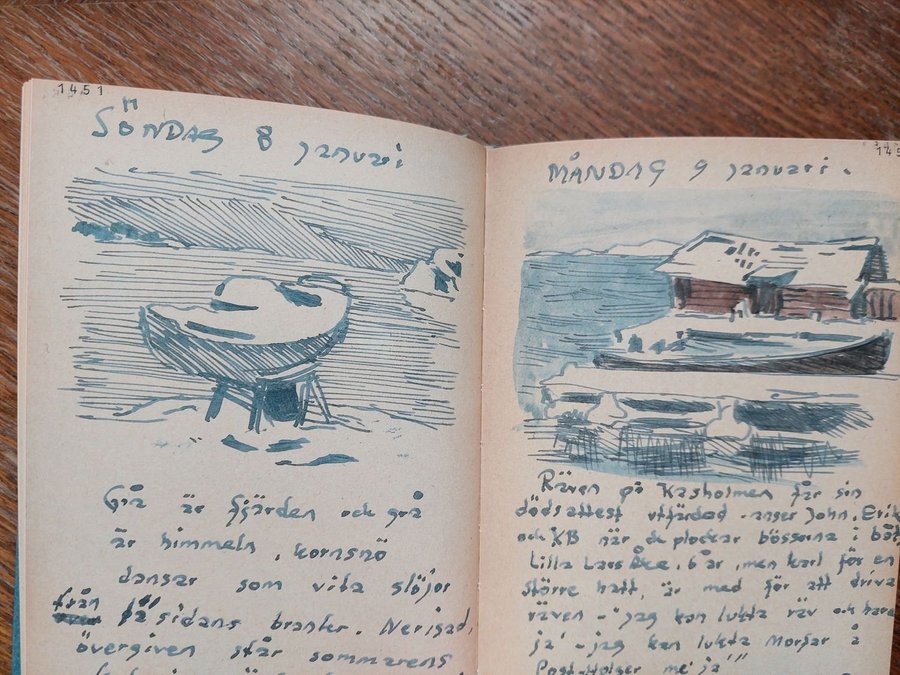 1451
SÖNDAG 8 januari
Grå är fjärden och grå
är himmeln, kornsnö
dansar som vita slöjor
från sidans branter. Nerisad,
övergiven står sommarens
145
MÅNDAG 9 januari.
Räven på Kasholmen får sin
dödsattest utfärdad - anser John, Erik
och KB när de plockar bössorna i båt
Lilla Lars Åke, 6 år, men karl för en
större hatt, är med för att driva
räven - "jag kan lukta räv och hare
ja' - jag kan lukta Morfar å
Post-Holger me' ja'"